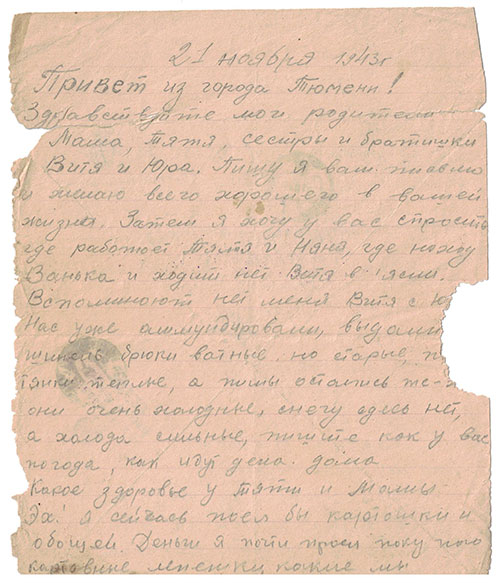 21 ноября 1943г
Привет из города Тюмени!
Здравствуйте мои родители
Мама, тятя, сестры и братишки
Витя и Юра. Пишу я вам письмо
и желаю всего хорошего в вашей
жизни. Затем я хочу у вас спросить
где работает Тятя и Няня, где
Ванька и ходит нет Витя в ясли.
Вспоминают нет меня Витя с Ю
Нас уже аммундировали, выдали
шинель брюки ватные но старые,
теплые, а пимы остались
они очень холодные, снегу здесь нет,
а холода сильные, пишите как у вас
погода, как идут дела дома
Какое здоровье у тяти и Мамы
Эх! я сейчась поел бы картошки и
овощей. Деньги я почти проел
лепешки какие мы